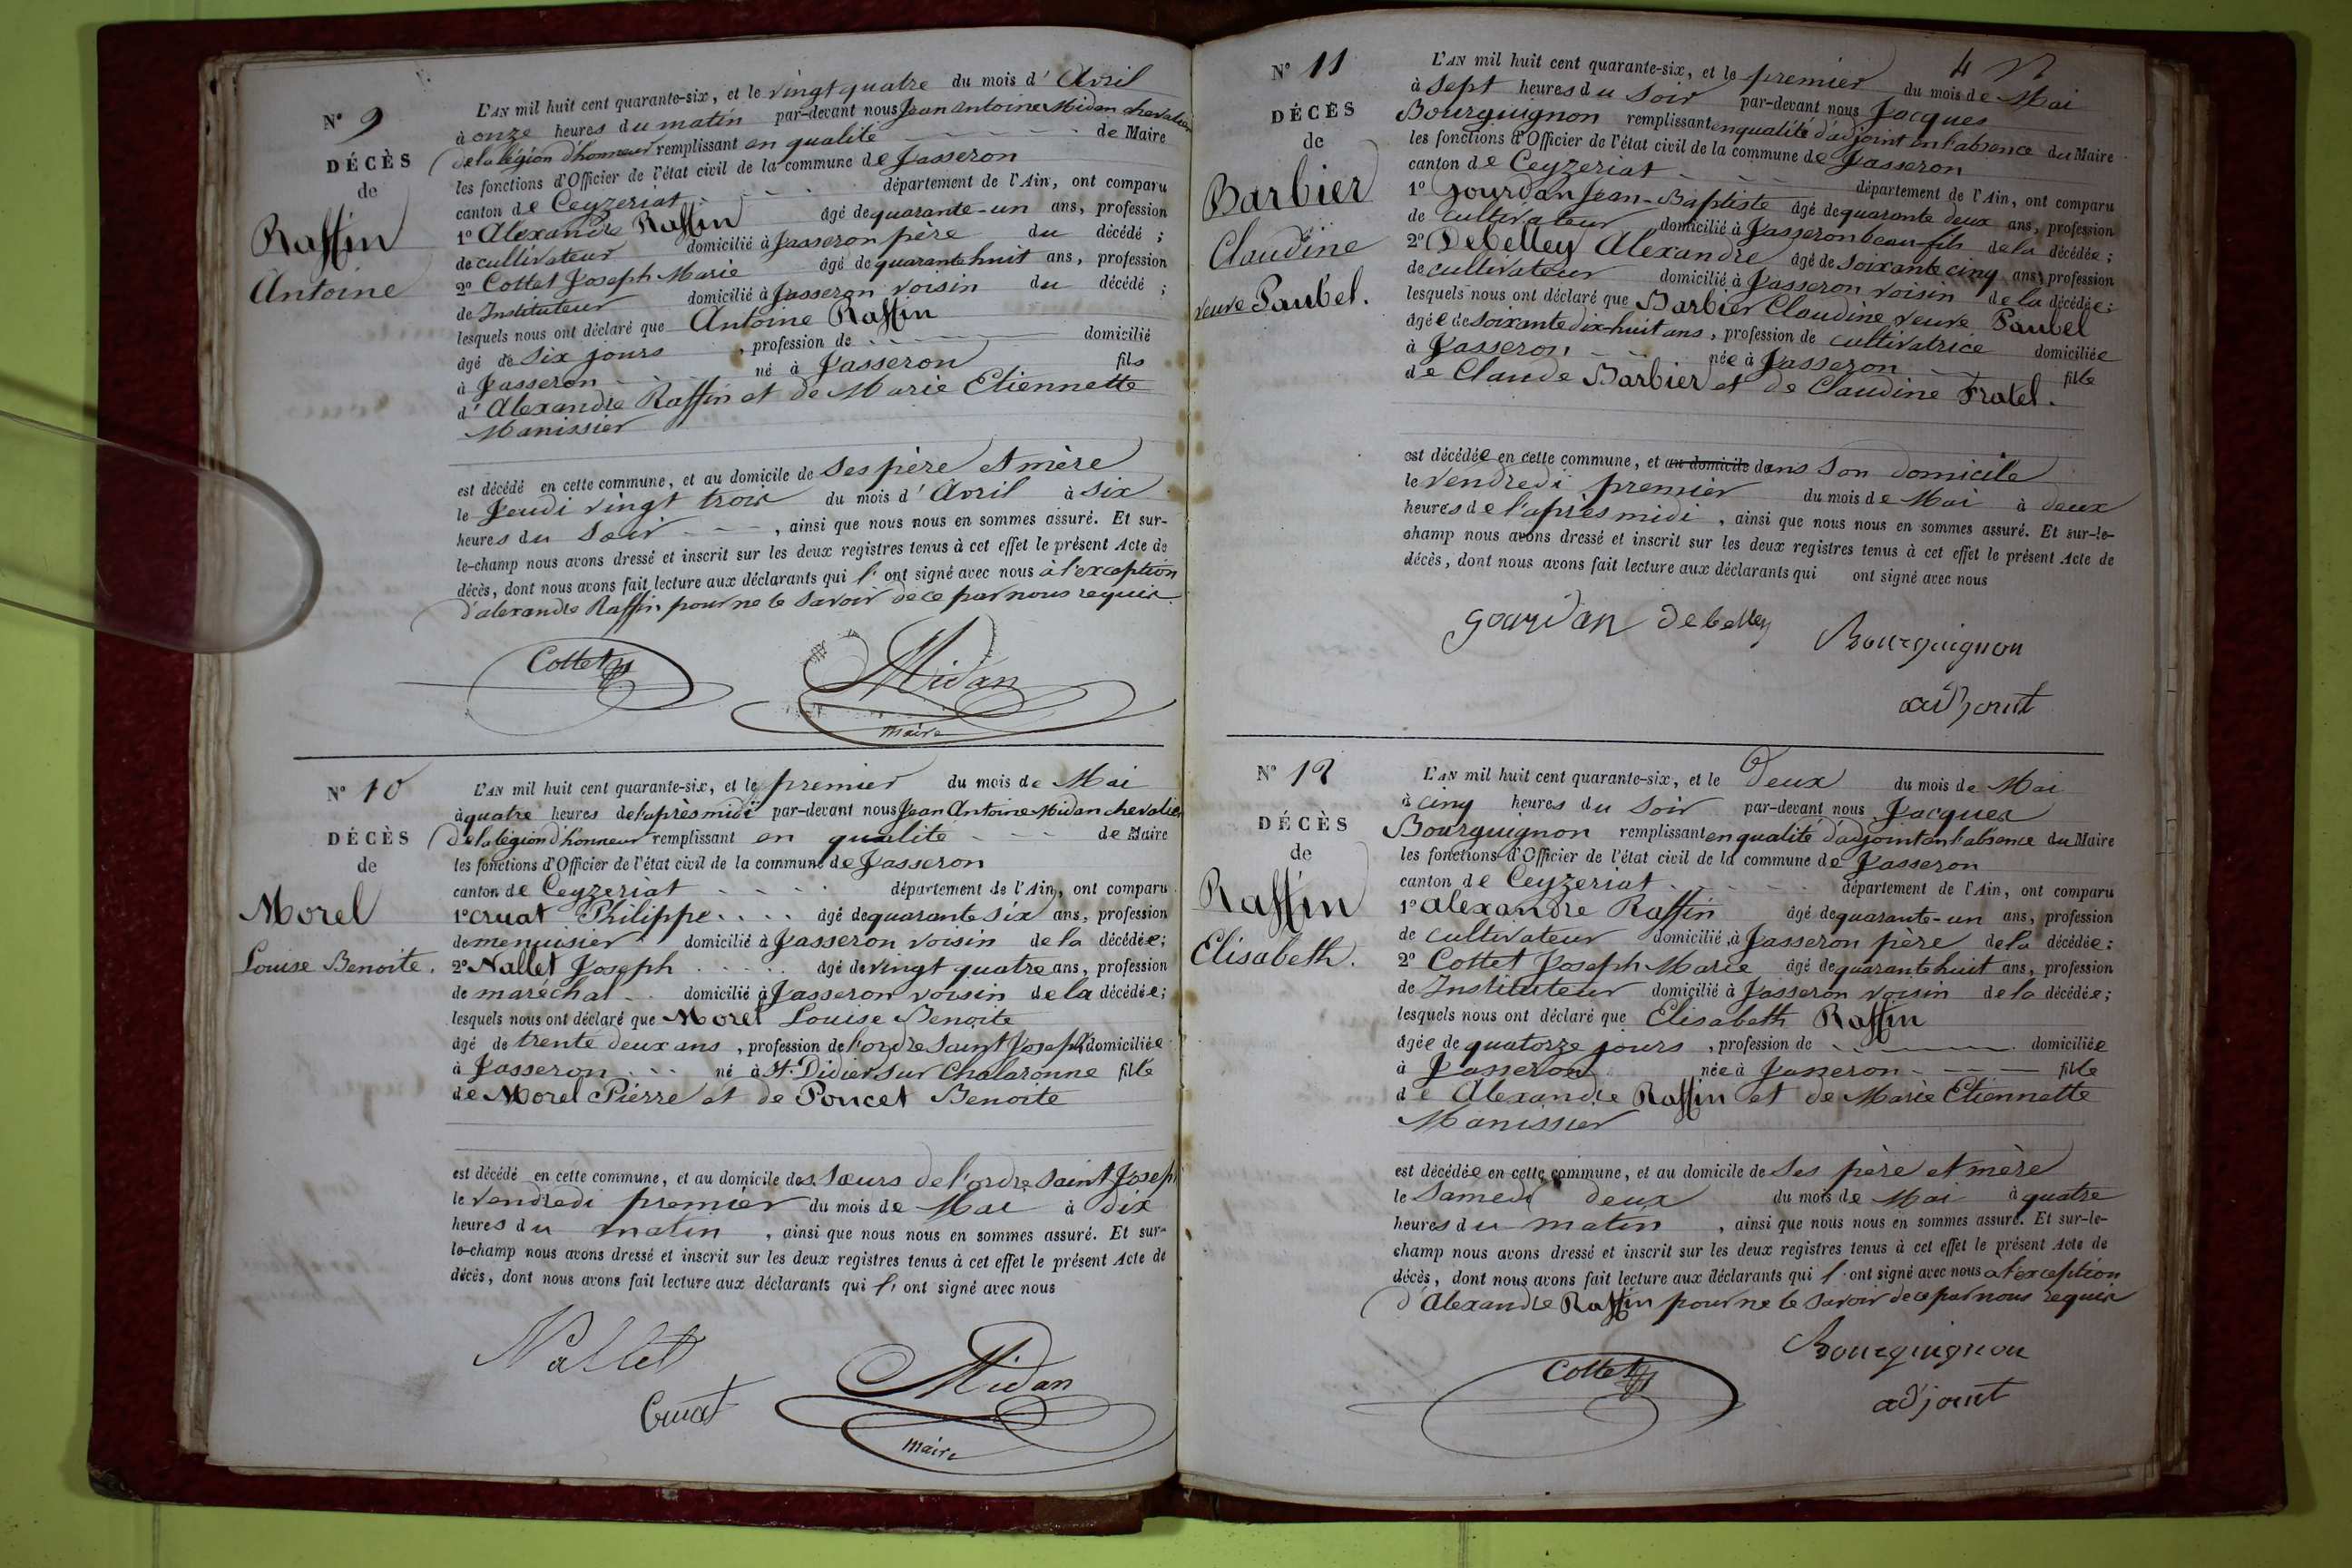 N° 9
DÉCÈS
de
Raffin
Antoine
L'AN mil huit cent quarante-six, et le vingt quatre du mois d'Avril
à onze heures du matin par-devant nous Jean Antoine Midan chevalier
de la légion d'honneur remplissant en qualité de Maire
les fonctions d'Officier de l'état civil de la commune de Jasseron
canton de Ceyzeriat département de l'Ain, ont comparu
1° Alexandre Raffin âgé de quarante-un ans, profession
de cultivateur domicilié à Jasseron père du décédé ;
2° Cottet Joseph Marie âgé de quarante huit ans, profession
de Instituteur domicilié à Jasseron voisin du décédé ;
lesquels nous ont déclaré que Antoine Raffin
âgé de six jours , profession de domicilié
à Jasseron né à Jasseron fils
d'Alexandre Raffin et de Marie Etiennette
Manissier
est décédé en cette commune, et au domicile de ses père et mère
le Jeudi vingt trois du mois d'Avril à six
heures du soir , ainsi que nous nous en sommes assuré. Et sur-
le-champ nous avons dressé et inscrit sur les deux registres tenus à cet effet le présent Acte de
décès, dont nous avons fait lecture aux déclarants qui l'ont signé avec nous à l'exception
d'alexandre Raffin pour ne le savoir de ce par nous requis
Cottet
Midan
maire
N° 10
DÉCÈS
de
Morel
Louise Benoite.
L'AN mil huit cent quarante-six, et le premier du mois de Mai
à quatre heures de l'après midi par-devant nous Jean Antoine Midan chevalier
de la légion d'honneur remplissant en qualité de Maire
les fonctions d'Officier de l'état civil de la commune de Jasseron
canton de Ceyzeriat département de l'Ain, ont comparu
1° Cruat Philippe âgé de quarante six ans, profession
de menuisier domicilié à Jasseron voisin de la décédée;
2° Nallet Joseph âgé de vingt quatre ans, profession
de maréchal domicilié à Jasseron voisin de la décédée;
lesquels nous ont déclaré que Morel Louise Benoite
âgé de trente deux ans , profession de l'ordre Saint Joseph domiciliée
à Jasseron né à St. Didier sur Chalaronne fille
de Morel Pierre et de Poncet Benoite
est décédé en cette commune, et au domicile des Sœurs de l'ordre Saint Joseph
le vendredi premier du mois de Mai à dix
heures du matin , ainsi que nous nous en sommes assuré. Et sur-
le-champ nous avons dressé et inscrit sur les deux registres tenus à cet effet le présent Acte de
décès, dont nous avons fait lecture aux déclarants qui l'ont signé avec nous
Nallet
Cruat
Midan
maire
4
N° 11
DÉCÈS
de
Barbier
Claudine
veuve Paubel.
L'AN mil huit cent quarante-six, et le premier du mois de Mai
à sept heures du soir par-devant nous Jacques
Bourguignon remplissant en qualité d'adjoint en l'absence du Maire
les fonctions d'Officier de l'état civil de la commune de Jasseron
canton de Ceyzeriat département de l'Ain, ont comparu
1° Gourdan Jean-Baptiste âgé de quarante deux ans, profession
de cultivateur domicilié à Jasseron beau-fils de la décédée ;
2° Debelley Alexandre âgé de soixante cinq ans, profession
de cultivateur domicilié à Jasseron voisin de la décédée;
lesquels nous ont déclaré que Barbier Claudine veuve Paubel
âgée de soixante dix-huit ans, profession de cultivatrice domiciliée
à Jasseron née à Jasseron fille
de Claude Barbier et de Claudine Fratel.
est décédée en cette commune, et au domicile dans son domicile
le vendredi premier du mois de Mai à deux
heures de l'après midi , ainsi que nous nous en sommes assuré. Et sur-le-
champ nous avons dressé et inscrit sur les deux registres tenus à cet effet le présent Acte de
décès, dont nous avons fait lecture aux déclarants qui ont signé avec nous
gourdan debelley Bourguignon
adjoint
N° 12
DÉCÈS
de
Raffin
Elisabeth.
L'AN mil huit cent quarante-six, et le Deux du mois de Mai
à cinq heures du soir par-devant nous Jacques
Bourguignon remplissant en qualité d'adjoint en l'absence du Maire
les fonctions d'Officier de l'état civil de la commune de Jasseron
canton de Ceyzeriat département de l'Ain, ont comparu
1° alexandre Raffin âgé de quarante-un ans, profession
de cultivateur domicilié à Jasseron père de la décédée ;
2° Cottet Joseph Marie âgé de quarante huit ans, profession
de Instituteur domicilié à Jasseron voisin de la décédée;
lesquels nous ont déclaré que Elisabeth Raffin
âgée de quatorze jours , profession de domiciliée
à Jasseron née à Jasseron fille
de Alexandre Raffin et de Marie Etiennette
Manissier
est décédée en cette commune, et au domicile de ses père et mère
le Samedi deux du mois de Mai à quatre
heures du matin , ainsi que nous nous en sommes assuré. Et sur-le-
champ nous avons dressé et inscrit sur les deux registres tenus à cet effet le présent Acte de
décès, dont nous avons fait lecture aux déclarants qui l'ont signé avec nous à l'exception
d'Alexandre Raffin pour ne le savoir de ce par nous requis
Cottet
Bourguignon
adjoint